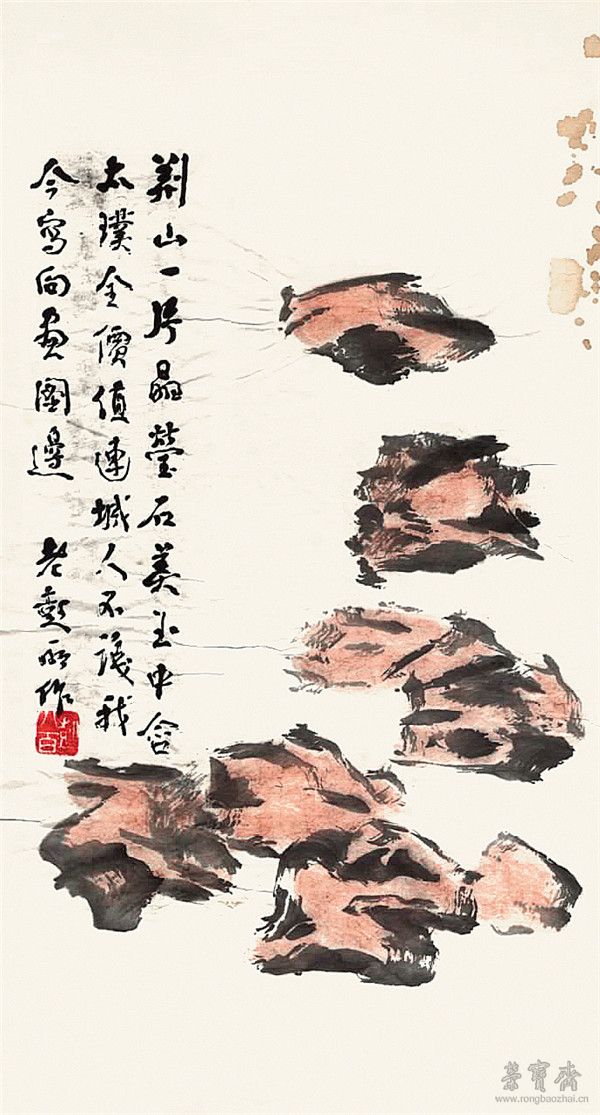 荆山一片晶瑩石美玉中含
太璞全價值連城人不識我
今寫向畫圖邊 老彭所作
榮寶齋
www.rongbaozhai.cn